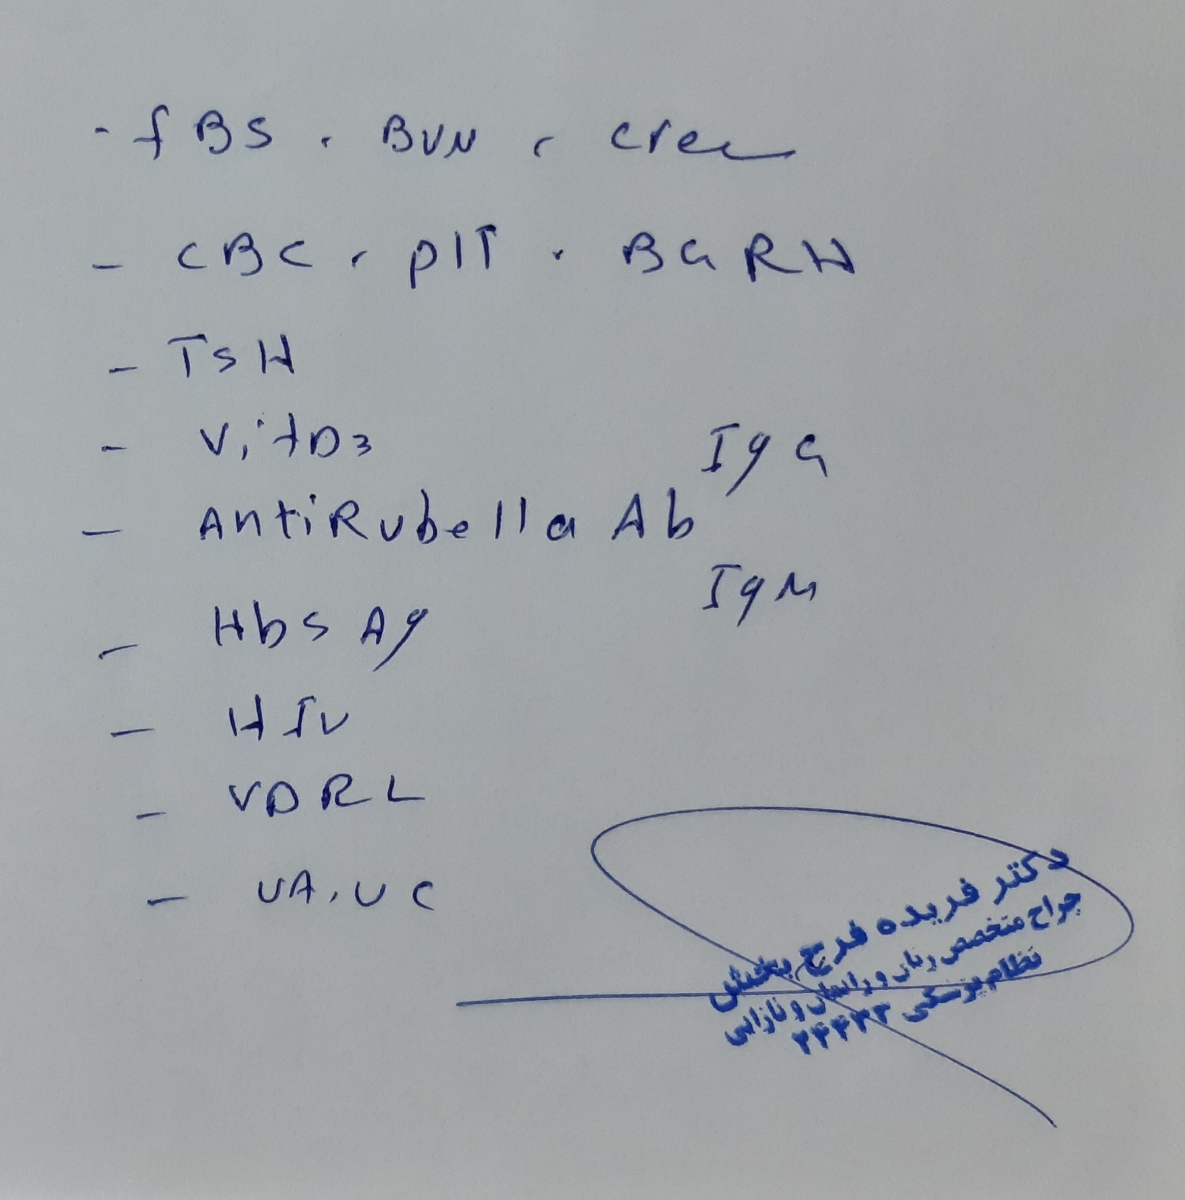 - fBS , BUN , crea
- CBC , plT , BG RH
- TSH
- VitD3
- AntiRubella Ab IgG
IgM
- Hbs Ag
- HIV
- VDRL
- UA, UC
دکتر فریده فرح بخش
جراح متخصص زنان و زایمان و نازایی
نظام پزشکی ۲۴۴۳۳